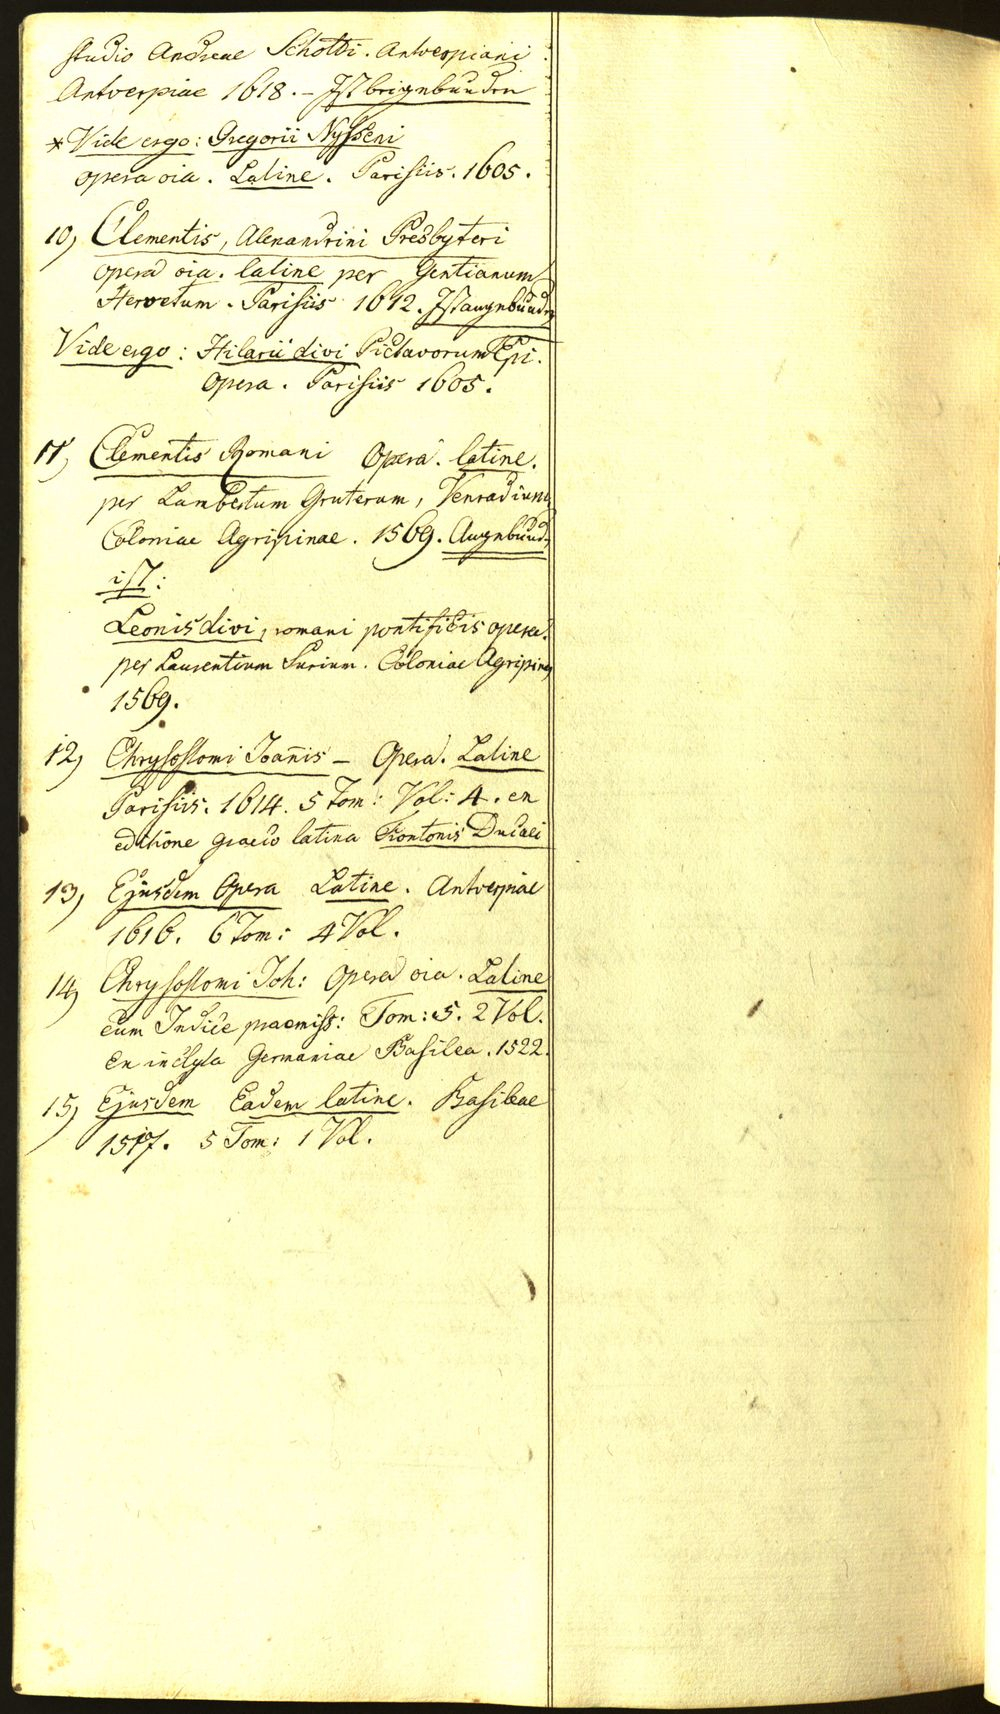 studio Andreae Schotti. Antverpiani
Antverpiae 1618. – Ist beigebunden
* Vide ergo: Gregorii Nysseni
opera oia. Latine. Parisiis. 1605.
10, Clementis, Alexandrini Presbyteri
opera oia. latine per Gentianum
Hervetum. Parisiis 1612. Ist angebunden
Vide ergo: Hilarii divi Pictavorum Epi.
Opera. Parisiis 1605.
11, Clementis Romani Opera. latine.
per Lambertum Gruterum, Venradium
Coloniae Agripinae. 1569. Angebunden
ist:
Leonis divi, romani pontificis opera.
per Laurentium Surium. Coloniae Agripinae
1569.
12, Chrysostomi Joañis – Opera. Latine
Parisiis. 1614. 5 Tom: Vol: 4. ex
editione graeco latina Frontonis Ducaei
13, Ejusdem Opera Latine. Antverpiae
1616. 6 Tom: 4 Vol.
14, Chrysostomi Joh: Opera oia. Latine
cum Indice praemiss: Tom: 5. 2 Vol.
Ex inclyta Germaniae Basilea. 1522.
15, Ejusdem Eadem latine. Basileae
1517. 5 Tom: 1 Vol.